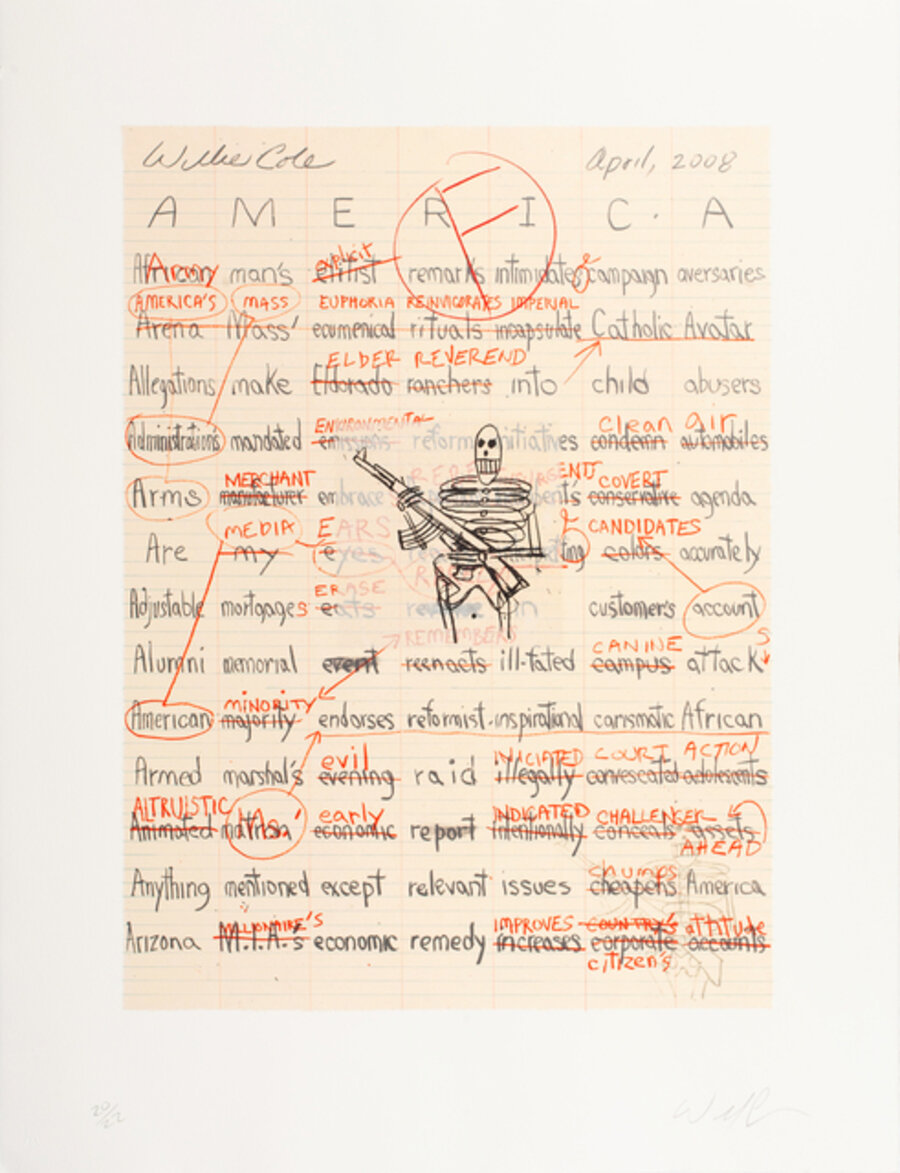 Willie Cole April, 2008
A M E R I C . A
F
Army explicit
African man's elitist remarks intimidates campaign aversaries
AMERICA'S MASS EUPHORIA REINVIGORATES IMPERIAL
Arena Mass' ecumenical rituals incapsulate Catholic Avatar
ELDER REVEREND
Allegations make Eldorado ranchers into child abusers
ENVIRONMENTAL clean air
Administrations mandated emissions reform initiatives condemn automobiles
MERCHANT COVERT
Arms manufacturer embrace conservative agenda
MEDIA EARS CANDIDATES
Are my eyes colors accurately
ERASE
Adjustable mortgages eats revenue on customer's account
REMEMBERS CANINE S
Alumni memorial event reenacts ill-fated campus attack
MINORITY
American majority endorses reformist inspirational carismatic African
evil INICIATED COURT ACTION
Armed marshal's evening raid illegally convescated adolescents
ALTRUISTIC early INDICATED CHALLENGER
Animated economic report intentionally conceals assets
AHEAD
chumps
Anything mentioned except relevant issues cheapens America
MILLIONAIRE'S IMPROVES COUNTRY'S attitude
Arizona M.I.A.'s economic remedy increases corporate accounts
citizen's
20/22